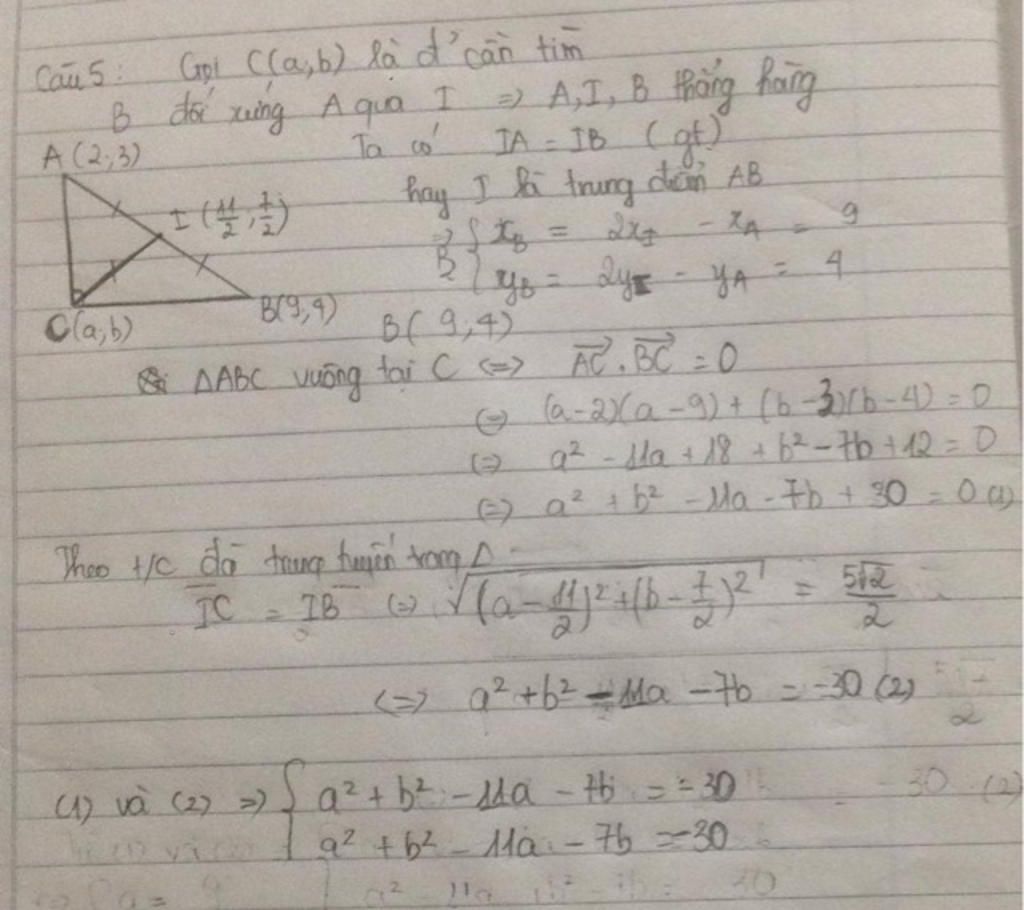 Câu 5: Gọi C(a,b) là đ' cần tìm
B đối xứng A qua I => A, I, B thẳng hàng
A(2;3)
Ta có IA = IB (gt)
hay I là trung điểm AB
I (11/2; 7/2)
=> { x_B = 2x_I - x_A = 9
B { y_B = 2y_I - y_A = 4
B(9,4)
C(a;b)
B(9;4)
ΔABC vuông tại C <=> AC→ . BC→ = 0
<=> (a-2)(a-9) + (b-3)(b-4) = 0
<=> a² - 11a + 18 + b² - 7b + 12 = 0
<=> a² + b² - 11a - 7b + 30 = 0 (1)
Theo t/c đg trung tuyến trong Δ
IC = IB <=> √((a - 11/2)² + (b - 7/2)²) = 5√2/2
<=> a² + b² - 11a - 7b = -30 (2)
(1) và (2) => { a² + b² - 11a - 7b = -30
{ a² + b² - 11a - 7b = -30